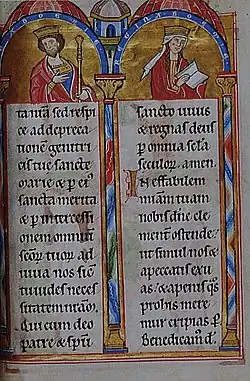 REGINA
ta nr̄am sed respi
ce ad depreca
tionē genitri
cis tue sancte
marie & ꝑ ei᷒
sancta merita
& ꝑ intercessi
onem omniū
sc̄oꝝ tuoꝝ ad
iuua nos sic
ut uides neces
sitatem nr̄am.
Qui cum deo
patre & sp̄u
sancto uiuis
& regnas deus
ꝑ omnia sc̄la
seculoꝝ. amen.
Ineffabilem
mīam tuam
nobis dn̄e cle
ment̄ ostende.
ut simul nos &
a peccatis exu
as. & a penis q̄s
pro his mere
mur eripias ꝑ.
Benedicam᷒ d̄.